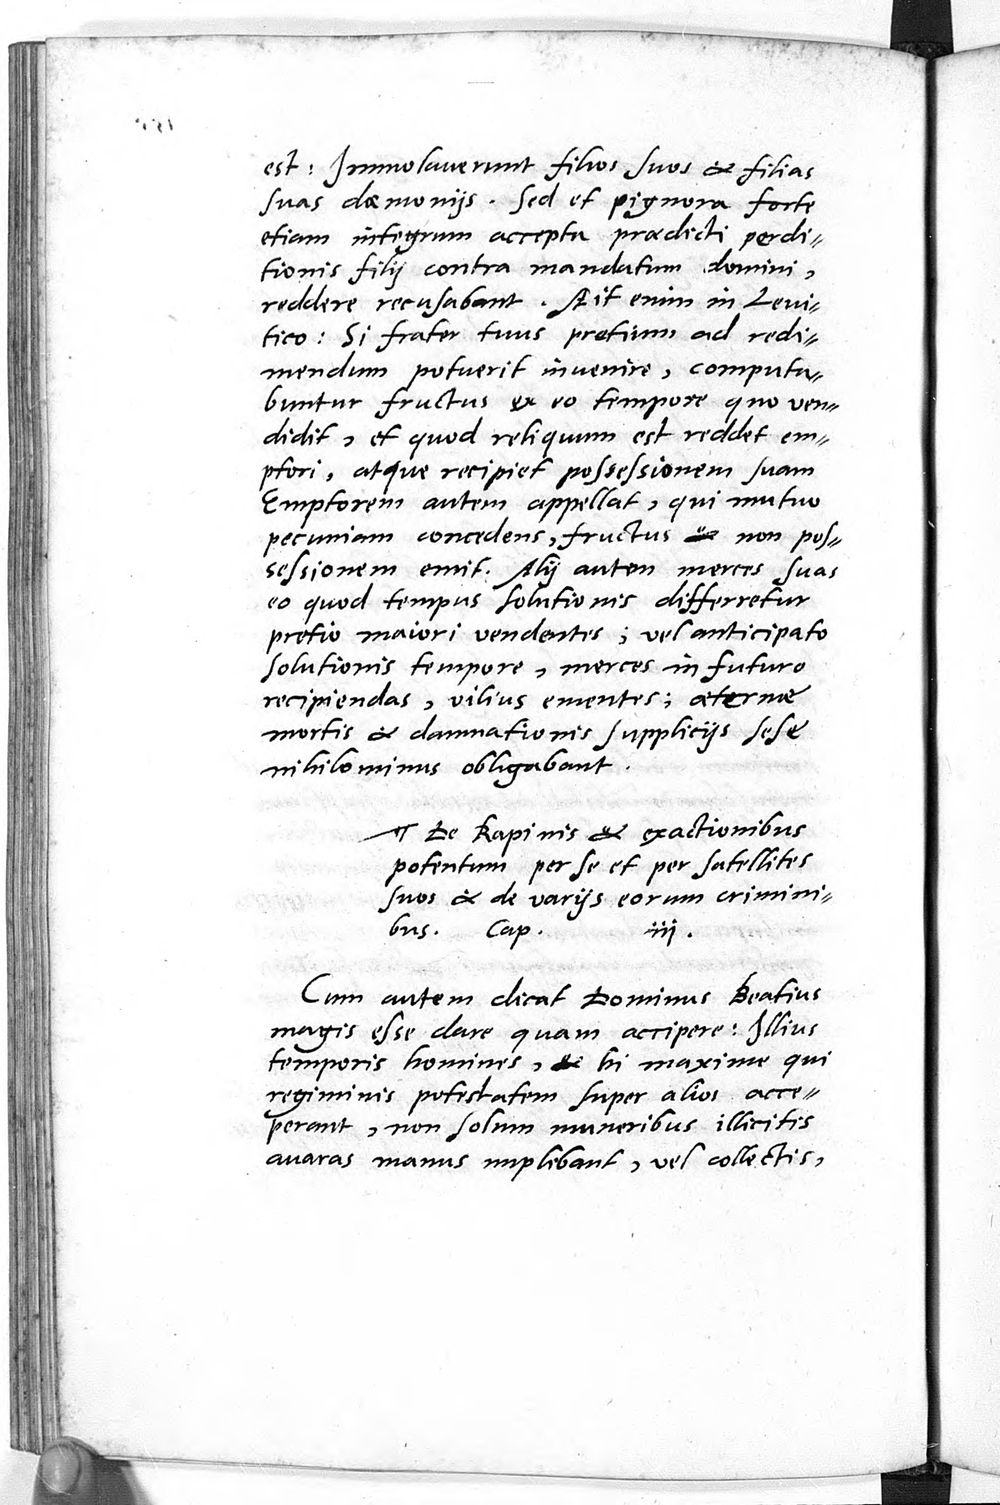 est: Immolauerunt filios suos & filias
suas dæmonijs. Sed et pignora forte
etiam integrum accepta prædicti perdi=
tionis filij contra mandatum domini,
reddere recusabant. Ait enim in Leui=
tico: Si frater tuus pretium ad redi=
mendum potuerit inuenire, computa=
buntur fructus ex eo tempore quo ven=
didit, et quod reliquum est reddet em=
ptori, atque recipiet possessionem suam
Emptorem autem appellat, qui mutuo
pecuniam concedens, fructus & non pos=
sessionem emit. Alij autem merces suas
eo quod tempus solutionis differretur
pretio maiori vendentes; vel anticipato
solutionis tempore, merces in futuro
recipiendas, vilius ementes; æternæ
mortis & damnationis supplicijs sese
nihilominus obligabant.
¶ De Rapinis & exactionibus
potentum per se et per satellites
suos & de varijs eorum crimini=
bus. Cap. iiij.
Cum autem dicat Dominus Beatius
magis esse dare quam accipere: Illius
temporis homines, & hi maxime qui
regiminis potestatem super alios acce=
perant, non solum muneribus illicitis
auaras manus implebant, vel collectis,